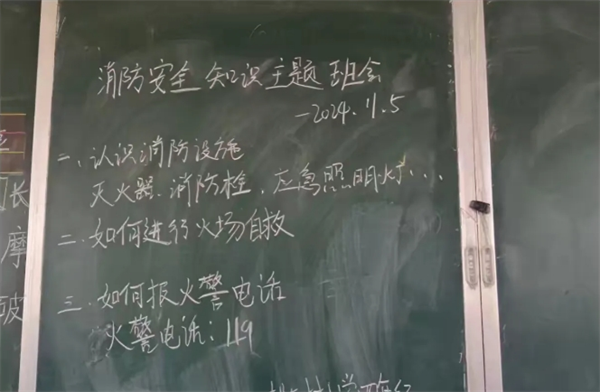 消防安全知识主题班会
-2024.11.5
一、认识消防设施
灭火器.消防栓.应急照明灯...
二.如何进行火场自救
三.如何报火警电话
火警电话:119
长
摩
破